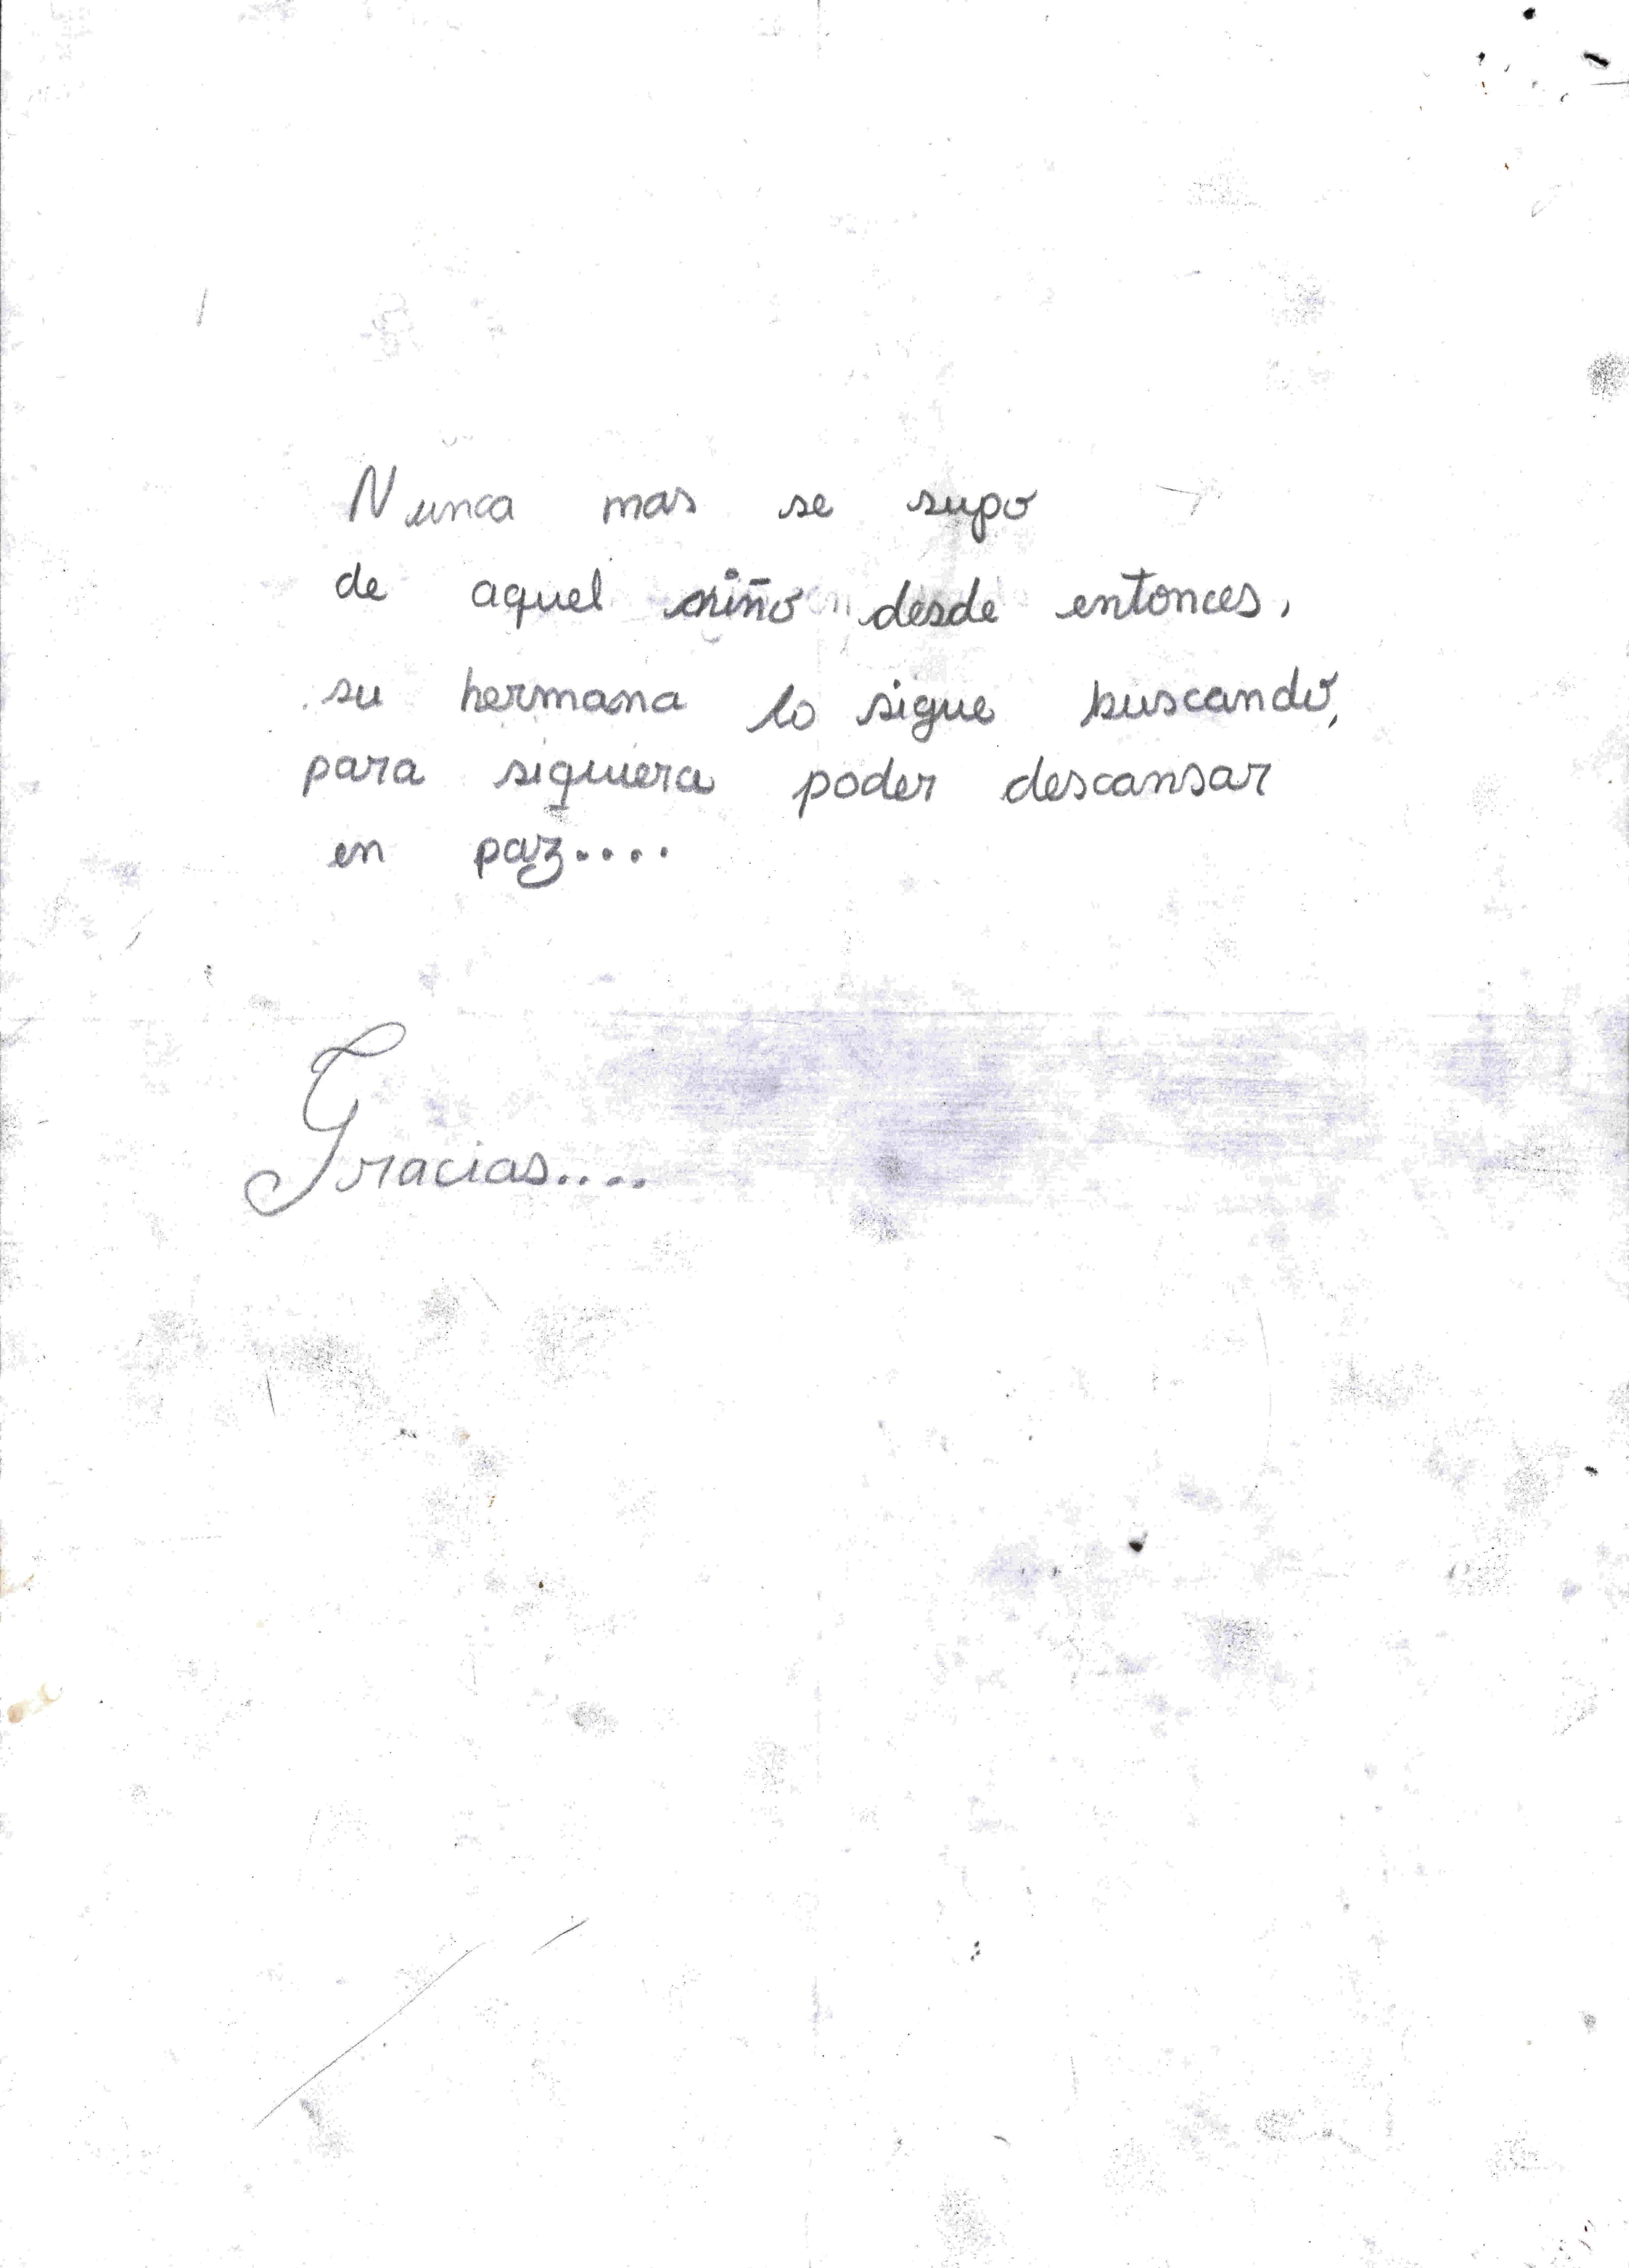 Nunca mas se supo
de aquel niño desde entonces,
su hermana lo sigue buscando,
para siquiera poder descansar
en paz....
Gracias....